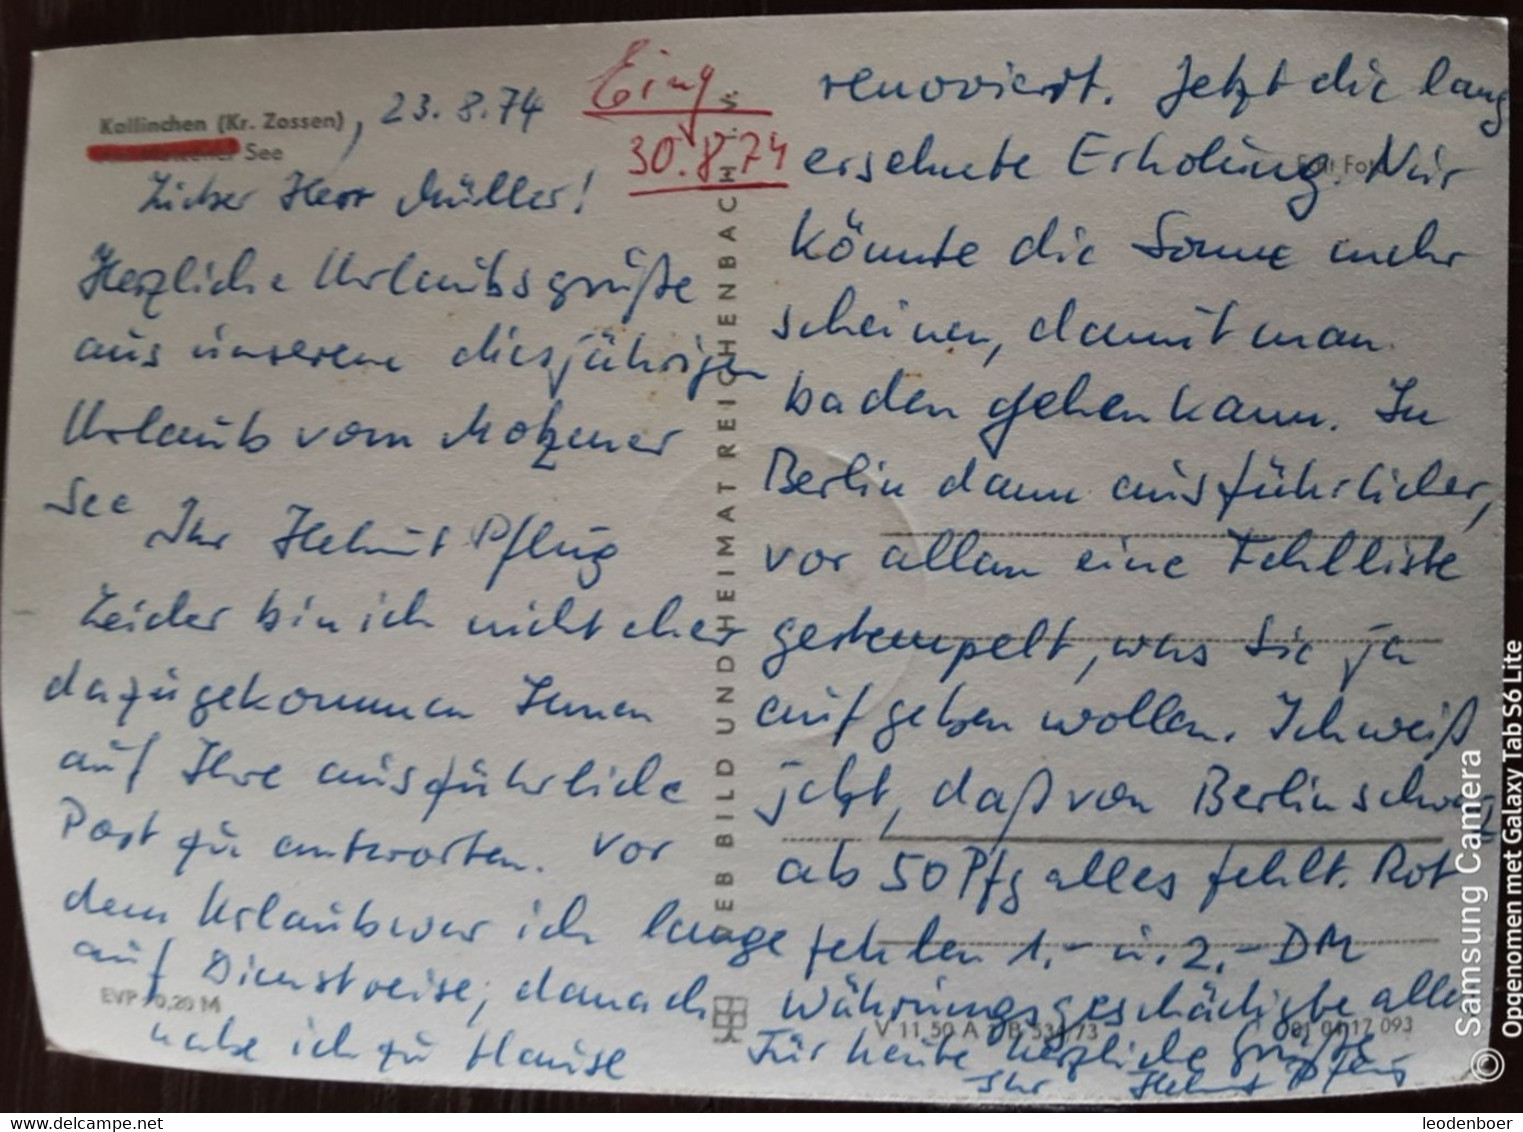 Kallinchen (Kr. Zossen), 23.8.74
See
Eing
30.8.74
Lieber Herr Müller!
Herzliche Urlaubsgrüße
aus unserem diesjährigen
Urlaub vom Motzener
See
Ihr Helmut Pflug
Leider bin ich nicht eher
dazugekommen Ihnen
auf Ihre ausführliche
Post zu antworten. Vor
dem Urlaub war ich lange
auf Dienstreise, danach
habe ich zu Hause
EVP 0,20 M
REB BILD UND HEIMAT REICHENBACH I. V.
renoviert. Jetzt die lang
ersehnte Erholung. Nur
könnte die Sonne mehr
scheinen, damit man
baden gehen kann. In
Berlin dann ausführlicher,
vor allem eine Fehlliste
gestempelt, was Sie ja
aufgeben wollen. Ich weiß
jetzt, daß von Berlin schwarz
ab 50 Pfg alles fehlt. Rot
fehlen 1,- u. 2,- DM
Währungsgeschädigte alle
Für heute herzliche Grüße
Ihr Helmut Pflug
V 11 50 A 1 B 534/73
01 01 17 093
© Samsung Camera
Opgenomen met Galaxy Tab S6 Lite
www.delcampe.net
leodenboer